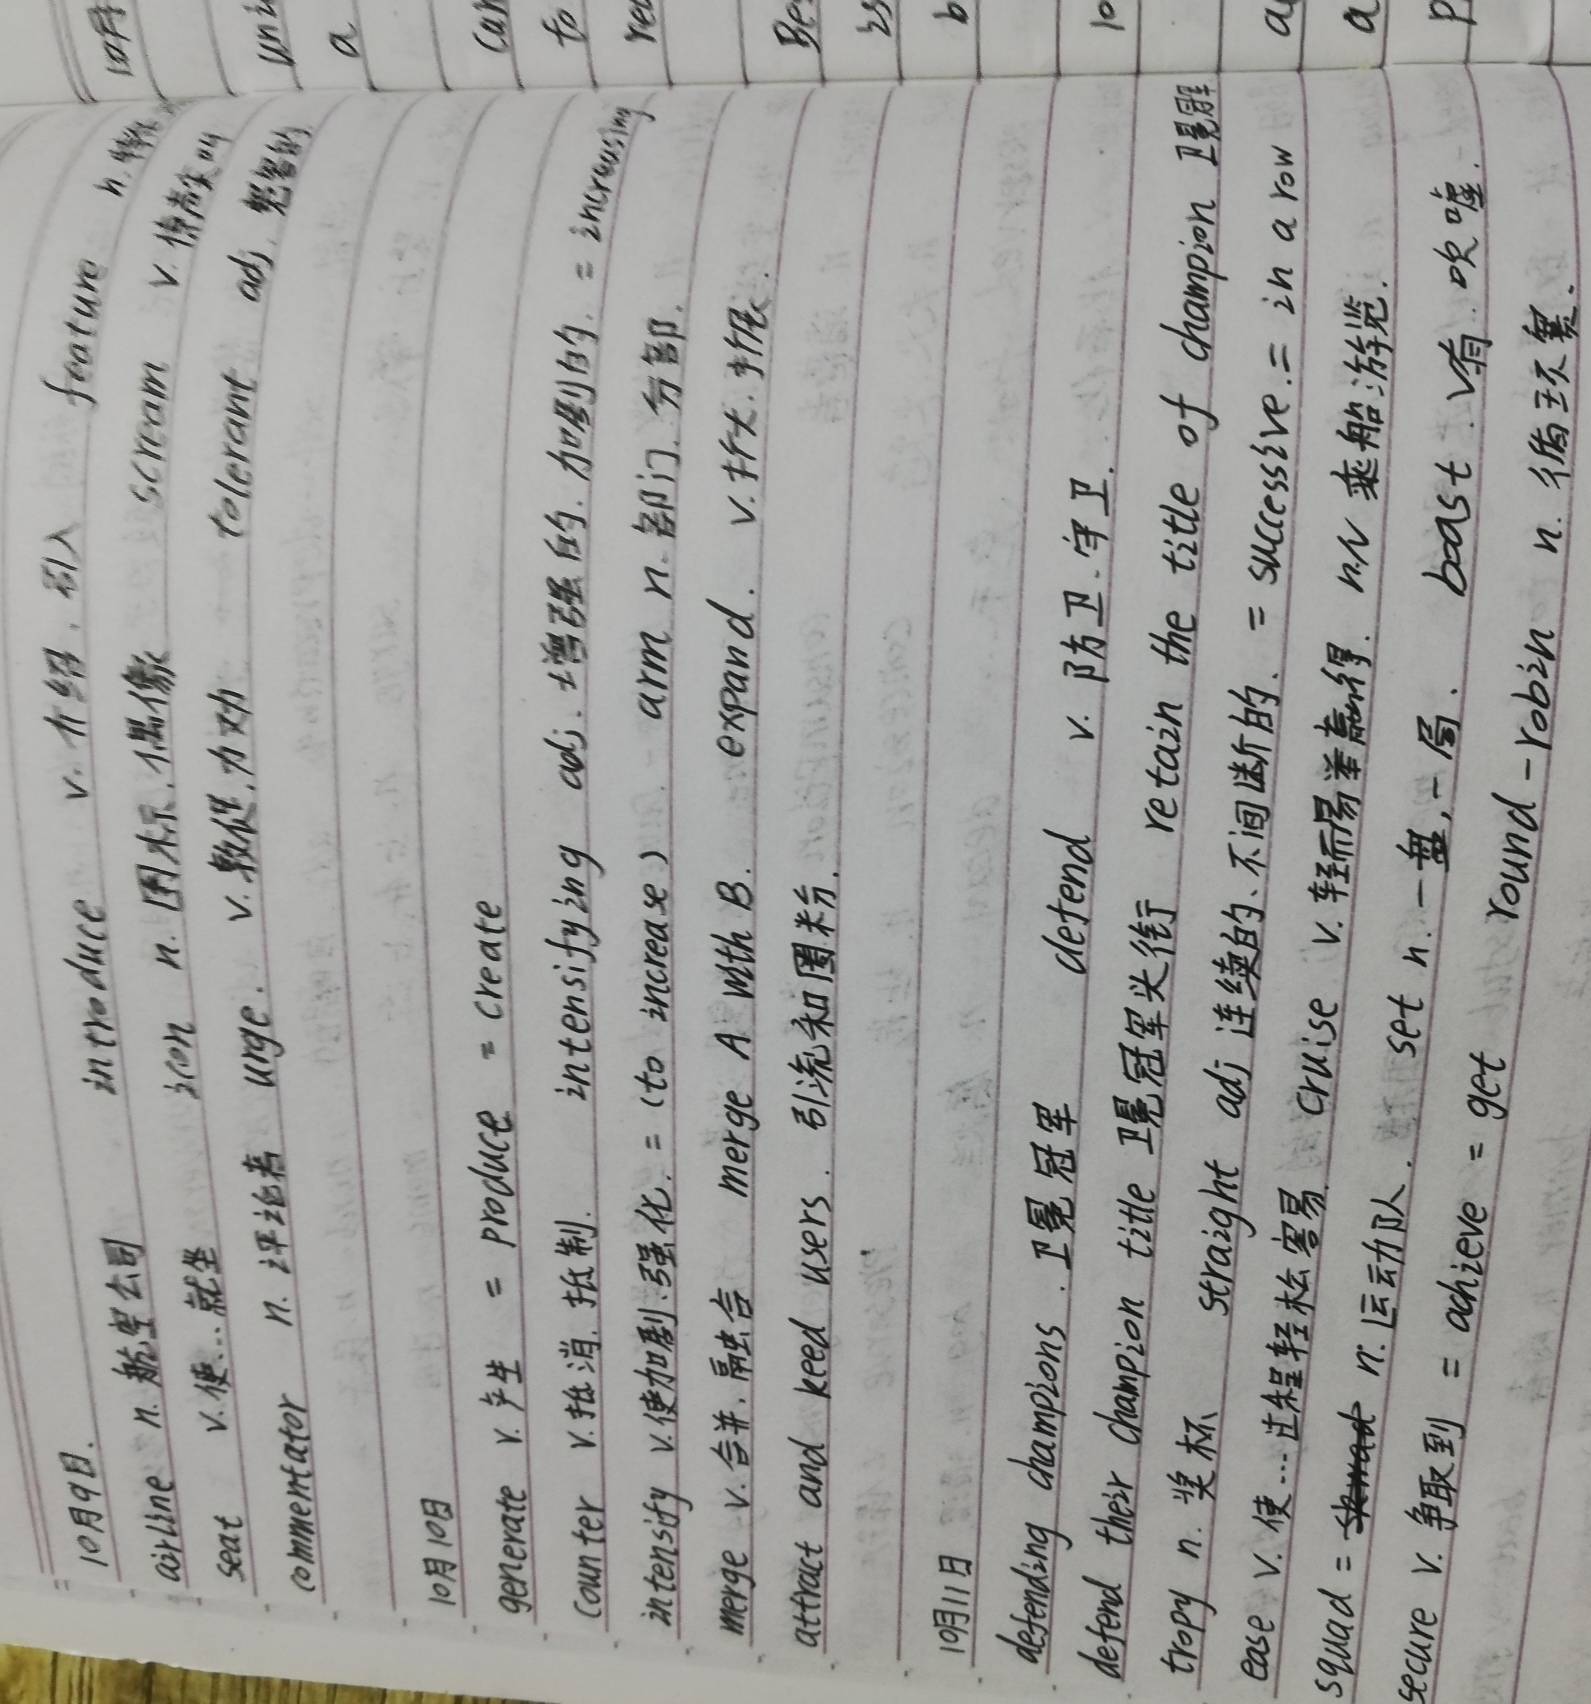 10月9日.
airline n. 航空公司 introduce v. 介绍、引入 feature n. 特
seat v. 使...就坐 icon n. 图标, 偶像 scream v. 尖叫
commentator n. 评论者 urge. v. 敦促, 力劝 tolerant adj.
10月10日
generate v. 产生 = produce = create
counter v. 抵消. 抵制. intensifying adj. 增强的. 加剧的. = increasing
intensify v. 使加剧、强化. = (to increase) arm n. 部门. 分部.
merge v. 合并. 融合 merge A with B. expand. v. 扩大. 扩展.
attract and keed users. 引流和圈粉.
10月11日
defending champions. 卫冕冠军 defend v. 防卫. 守卫.
defend their champion title 卫冕冠军头衔 retain the title of champion 卫冕
tropy n. 奖杯 straight adj 连续的、不间断的. = successive. = in a row
ease v. 使...过程轻松容易. cruise v. 轻而易举赢得. n/v 乘船游览.
squad = n. 运动队. set n. 一盘, 一局. boast. v. 有. 吹嘘.
secure v. 争取到 = achieve = get round-robin n. 循环赛.
10月
uni
a
can
to
rec
Be
is
b
10
a
a
p